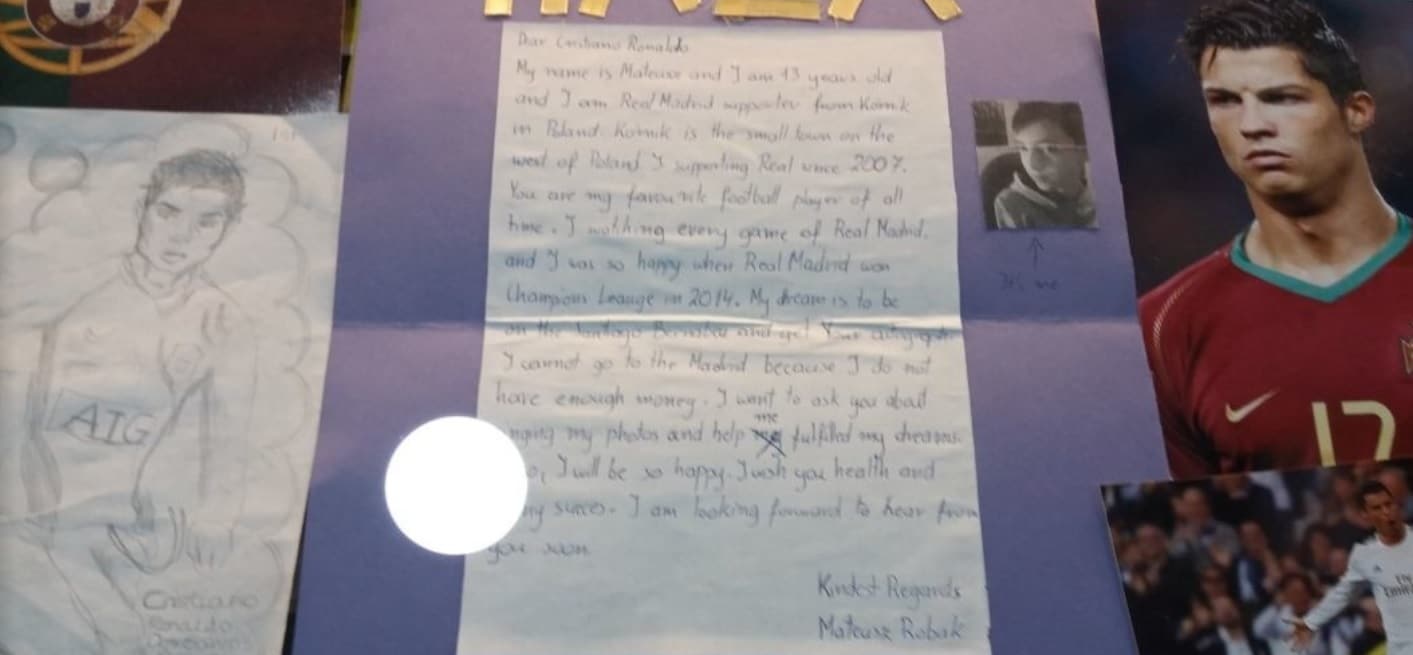 HALA
Dear Cristiano Ronaldo
My name is Mateusz and I am 13 years old
and I am Real Madrid supporter from Kórnik
in Poland. Kórnik is the small town on the
west of Poland I supporting Real since 2007.
You are my favourite football player of all
time. I watching every game of Real Madrid.
and I was so happy when Real Madrid won
Champions Leauge in 2014. My dream is to be
on the Santiago Bernabeu and get Your autograph.
I cannot go to the Madrid because I do not
have enough money. I want to ask you about
my photos and help me fulfilled my dreams.
I will be so happy. I wish you health and
succes. I am looking forward to hear from
you soon
Kindest Regards
Mateusz Robak
It's me
AIG
Cristiano
Ronaldo
17